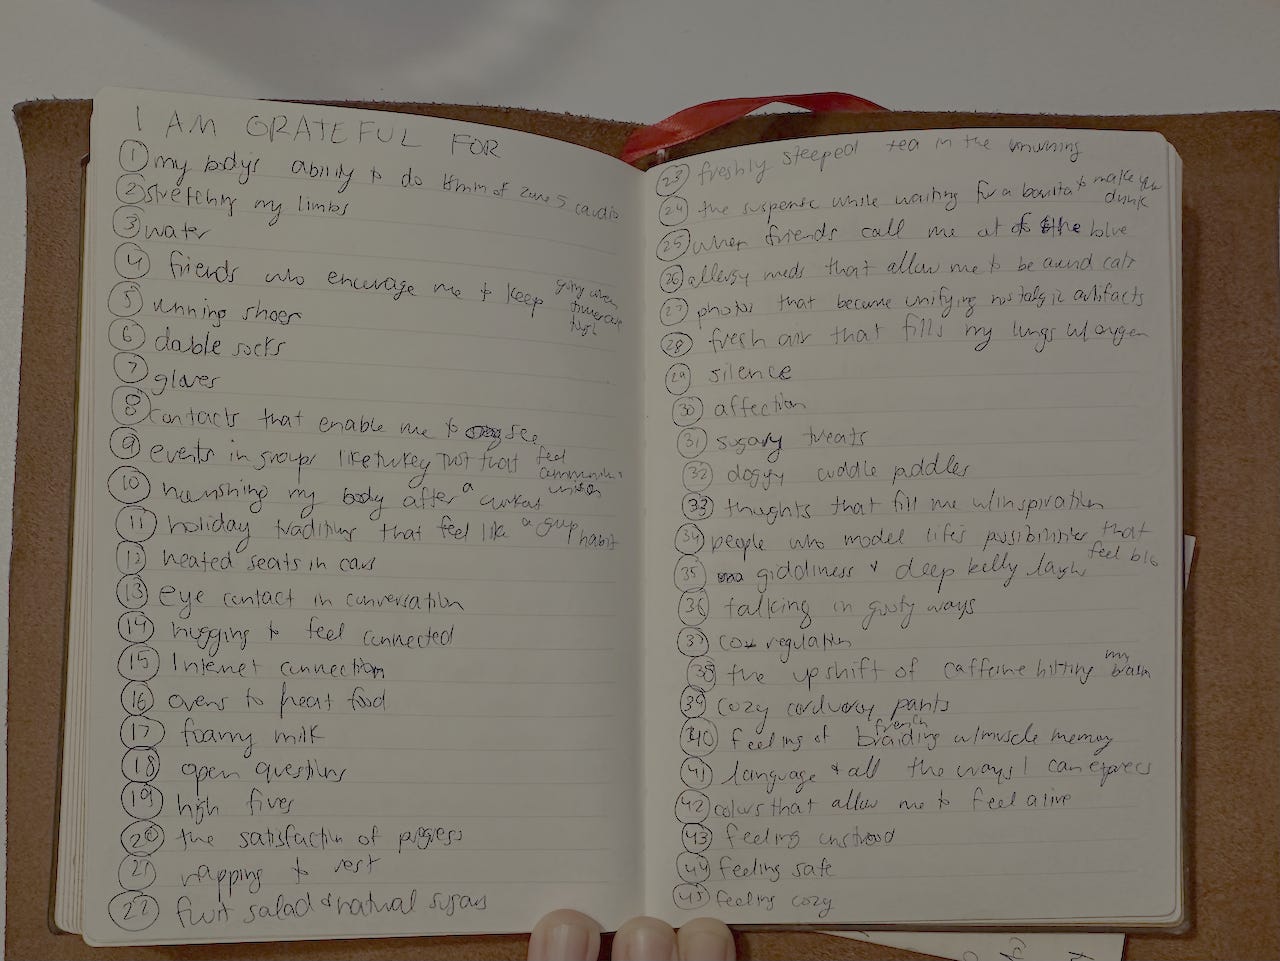 I AM GRATEFUL FOR
1 my body's ability to do of zone 5 cardio
2 stretching my limbs
3 water
4 friends who encourage me to keep going when
5 running shoes
6 dable socks
7 gloves
8 contacts that enable me to see
9 events in groups like turkey trot that feel
10 nourishing my body after a workout
11 holiday traditions that feel like a group habit
12 heated seats in cars
13 eye contact in conversation
14 hugging to feel connected
15 Internet connection
16 ovens to heat food
17 foamy milk
18 open questions
19 high fives
20 the satisfaction of progress
21 napping to rest
22 fruit salad & natural sugars
23 freshly steeped tea in the morning
24 the suspense while waiting for a barista to make your drink
25 when friends call me out of the blue
26 allergy meds that allow me to be around cats
27 photos that become unifying nostalgic artifacts
28 fresh air that fills my lungs w/ oxygen
29 silence
30 affection
31 sugary treats
32 doggy cuddle puddles
33 thoughts that fill me w/inspiration
34 people who model life's possibilities that feel big
35 giddiness & deep belly laughs
36 talking in goofy ways
37 co regulation
38 the upshift of caffeine hitting my brain
39 cozy corduroy pants
40 feeling of french braiding w/muscle memory
41 language & all the ways I can express
42 colors that allow me to feel alive
43 feeling
44 feeling safe
45 feeling cozy